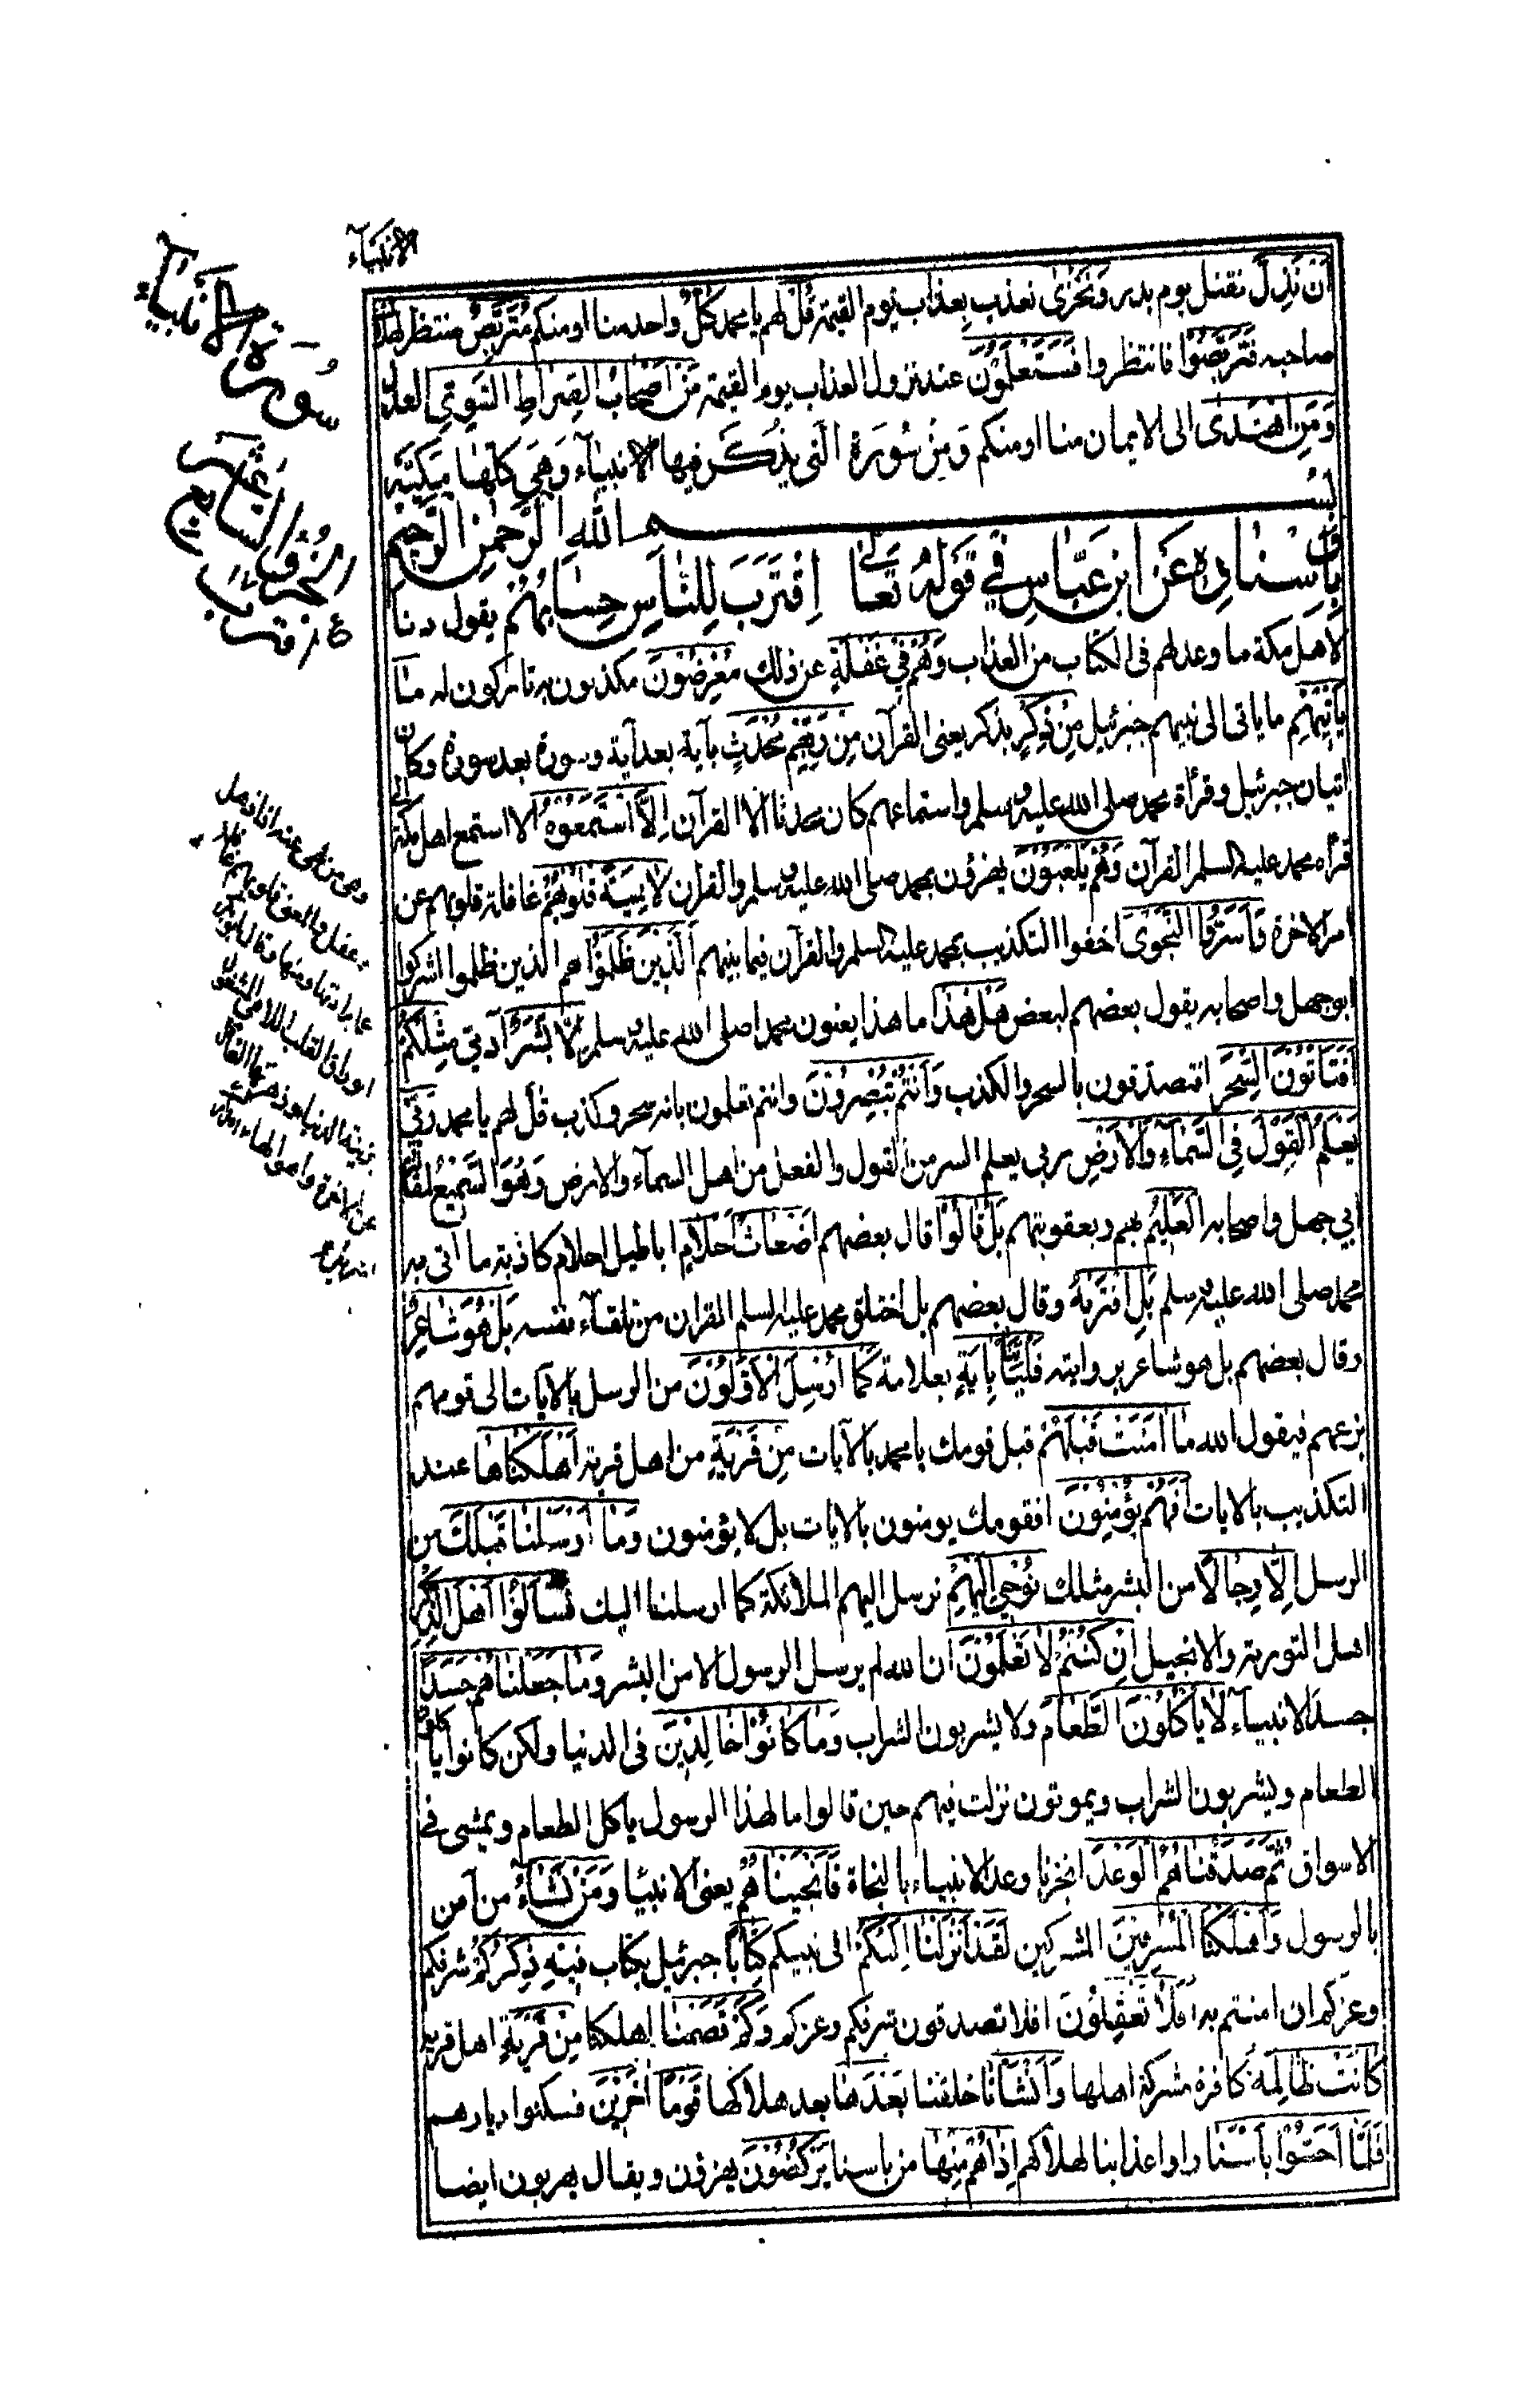 الانبيآء
اَنْ نَذِلَّ نقتل يوم بدر وَنَخْزٰى نعذب بعذاب يوم القيمة قُلْ لهم يا محمد كُلٌّ واحد منا او منكم مُتَرَبِّصٌ منتظر لهلاك
صاحبه فَتَرَبَّصُوْا فانتظروا فَسَتَعْلَمُوْنَ عند نزول العذاب يوم القيمة مَنْ اَصْحَابُ الصِّرَاطِ السَّوِىِّ العدل
وَمَنِ اهْتَدٰى الى الايمان منا او منكم وَمِنْ سُوْرَةِ الَّتى يذكر فيها الانبيآء وَهَىَ كلها مَكِيَّة
بِسْمِ اللهِ الرَّحْمٰنِ الرَّحِيْمِ
وَبِاِسْنَادِهِ عَنِ ابْنِ عَبَّاسٍ فِي قَوْلِهِ تَعَالٰى اِقْتَرَبَ لِلنَّاسِ حِسَابُهُمْ يقول دنا
لاهل مكة ما وعد لهم فى الكتاب من العذاب وَهُمْ فِيْ غَفْلَةٍ عن ذلك مُعْرِضُوْنَ مكذبون به تاركون له مَا
يَاْتِيْهِمْ ما ياتى الى نبيهم جبرئيل مِنْ ذِكْرٍ بذكر يعنى القرآن مِنْ رَبِّهِمْ مُحْدَثٍ بآية بعد آية وسورة بعد سورة وكان
اتيان جبرئيل وقرأة محمد صلى الله عليه وسلم واستماعهم كان محدثا لا القرآن اِلَّا اسْتَمَعُوْهُ الا استمع اهل مكة الى
قرأه محمد عليه السلم القرآن وَهُمْ يَلْعَبُوْنَ يهزؤن بمحمد صلى الله عليه وسلم والقرآن لَاهِيَةً قُلُوْبُهُمْ غافلة قلوبهم عن
امر الاخرة وَاَسَرُّوْا النَّجْوَى اخفوا التكذيب بمحمد عليه السلم والقرآن فيما بينهم اَلَّذِيْنَ ظَلَمُوْا هم الذين ظلموا اشركوا
ابوجهل واصحابه يقول بعضهم لبعض هَلْ هٰذَا ما هذا يعنون محمدا صلى الله عليه وسلم اِلَّا بَشَرٌ آدمى مِثْلُكُمْ
اَفَتَاْتُوْنَ السِّحْرَ افتصدقون بالسحر والكذب وَاَنْتُمْ تُبْصِرُوْنَ وانتم تعلمون بانه سحر وكذب قُلْ لهم يا محمد رَبِّيْ
يَعْلَمُ الْقَوْلَ فِى السَّمَآءِ وَالْاَرْضِ ربى يعلم السر من القول والفعل من اهل السمآء والارض وَهُوَ السَّمِيْعُ لمقالة
ابي جهل واصحابه الْعَلِيْمُ بهم وبعقوبتهم بَلْ قَالُوْا قال بعضهم اَضْغَاثُ اَحْلَامٍ اباطيل احلام كاذبة ما اتى به
محمد صلى الله عليه وسلم بَلِ افْتَرٰىهُ وقال بعضهم بل اختلق محمد عليه السلم القران من تلقآء نفسه بَلْ هُوَ شَاعِرٌ
وقال بعضهم بل هو شاعر بروايته فَلْيَاْتِنَا بِاٰيَةٍ بعلامة كَمَا اُرْسِلَ الْاَوَّلُوْنَ من الرسل بالآيات الى قومهم
بزعمهم فيقول الله مَا اٰمَنَتْ قَبْلَهُمْ قبل قومك يا محمد بالآيات مِنْ قَرْيَةٍ من اهل قرية اَهْلَكْنَاهَا عند
التكذيب بالايات اَفَهُمْ يُؤْمِنُوْنَ افقومك يومنون بالايات بل لا يؤمنون وَمَا اَرْسَلْنَا قَبْلَكَ من
الرسل اِلَّا رِجَالًا من البشر مثلك نُوْحِىْ اِلَيْهِمْ نرسل اليهم الملائكة كما ارسلنا اليك فَسْئَلُوْا اَهْلَ الذِّكْرِ
اهل التورية والانجيل اِنْ كُنْتُمْ لَا تَعْلَمُوْنَ ان الله لم يرسل الرسول الا من البشر وَمَا جَعَلْنَاهُمْ جَسَدًا
جسد الانبيآء لَا يَاْكُلُوْنَ الطَّعَامَ ولا يشربون الشراب وَمَا كَانُوْا خَالِدِيْنَ فى الدنيا ولكن كانوا ياكلون
الطعام ويشربون الشراب ويموتون نزلت فيهم حين قالوا مالهذا الرسول ياكل الطعام ويمشى فى
الاسواق ثُمَّ صَدَقْنَاهُمُ الْوَعْدَ انجزنا وعد الانبياء بالنجاة فَاَنْجَيْنَاهُمْ يعنى الانبيآ وَمَنْ نَشَآءُ من آمن
بالرسول وَاَهْلَكْنَا الْمُسْرِفِيْنَ المشركين لَقَدْ اَنْزَلْنَا اِلَيْكُمْ الى نبيكم كِتَابًا جبرئيل بكتاب فِيْهِ ذِكْرُكُمْ شرفكم
وعزكم ان امنتم به اَفَلَا تَعْقِلُوْنَ افلا تصدقون شرفكم وعزكم وَكَمْ قَصَمْنَا اهلكنا مِنْ قَرْيَةٍ اهل قرية
كَانَتْ ظَالِمَةً كافرة مشركة اهلها وَاَنْشَاْنَا خلقنا بَعْدَهَا بعد هلاكها قَوْمًا اٰخَرِيْنَ فسكنوا ديارهم
فَلَمَّا اَحَسُّوْا بَاْسَنَا راوا عذابنا لهلاكهم اِذَا هُمْ مِنْهَا من باسنا يَرْكُضُوْنَ يهزؤن ويقال يهربون ايضا
سُورَةُ الْاَنْبِيَآءِ
الجزؤ السابع عشر
اقترب